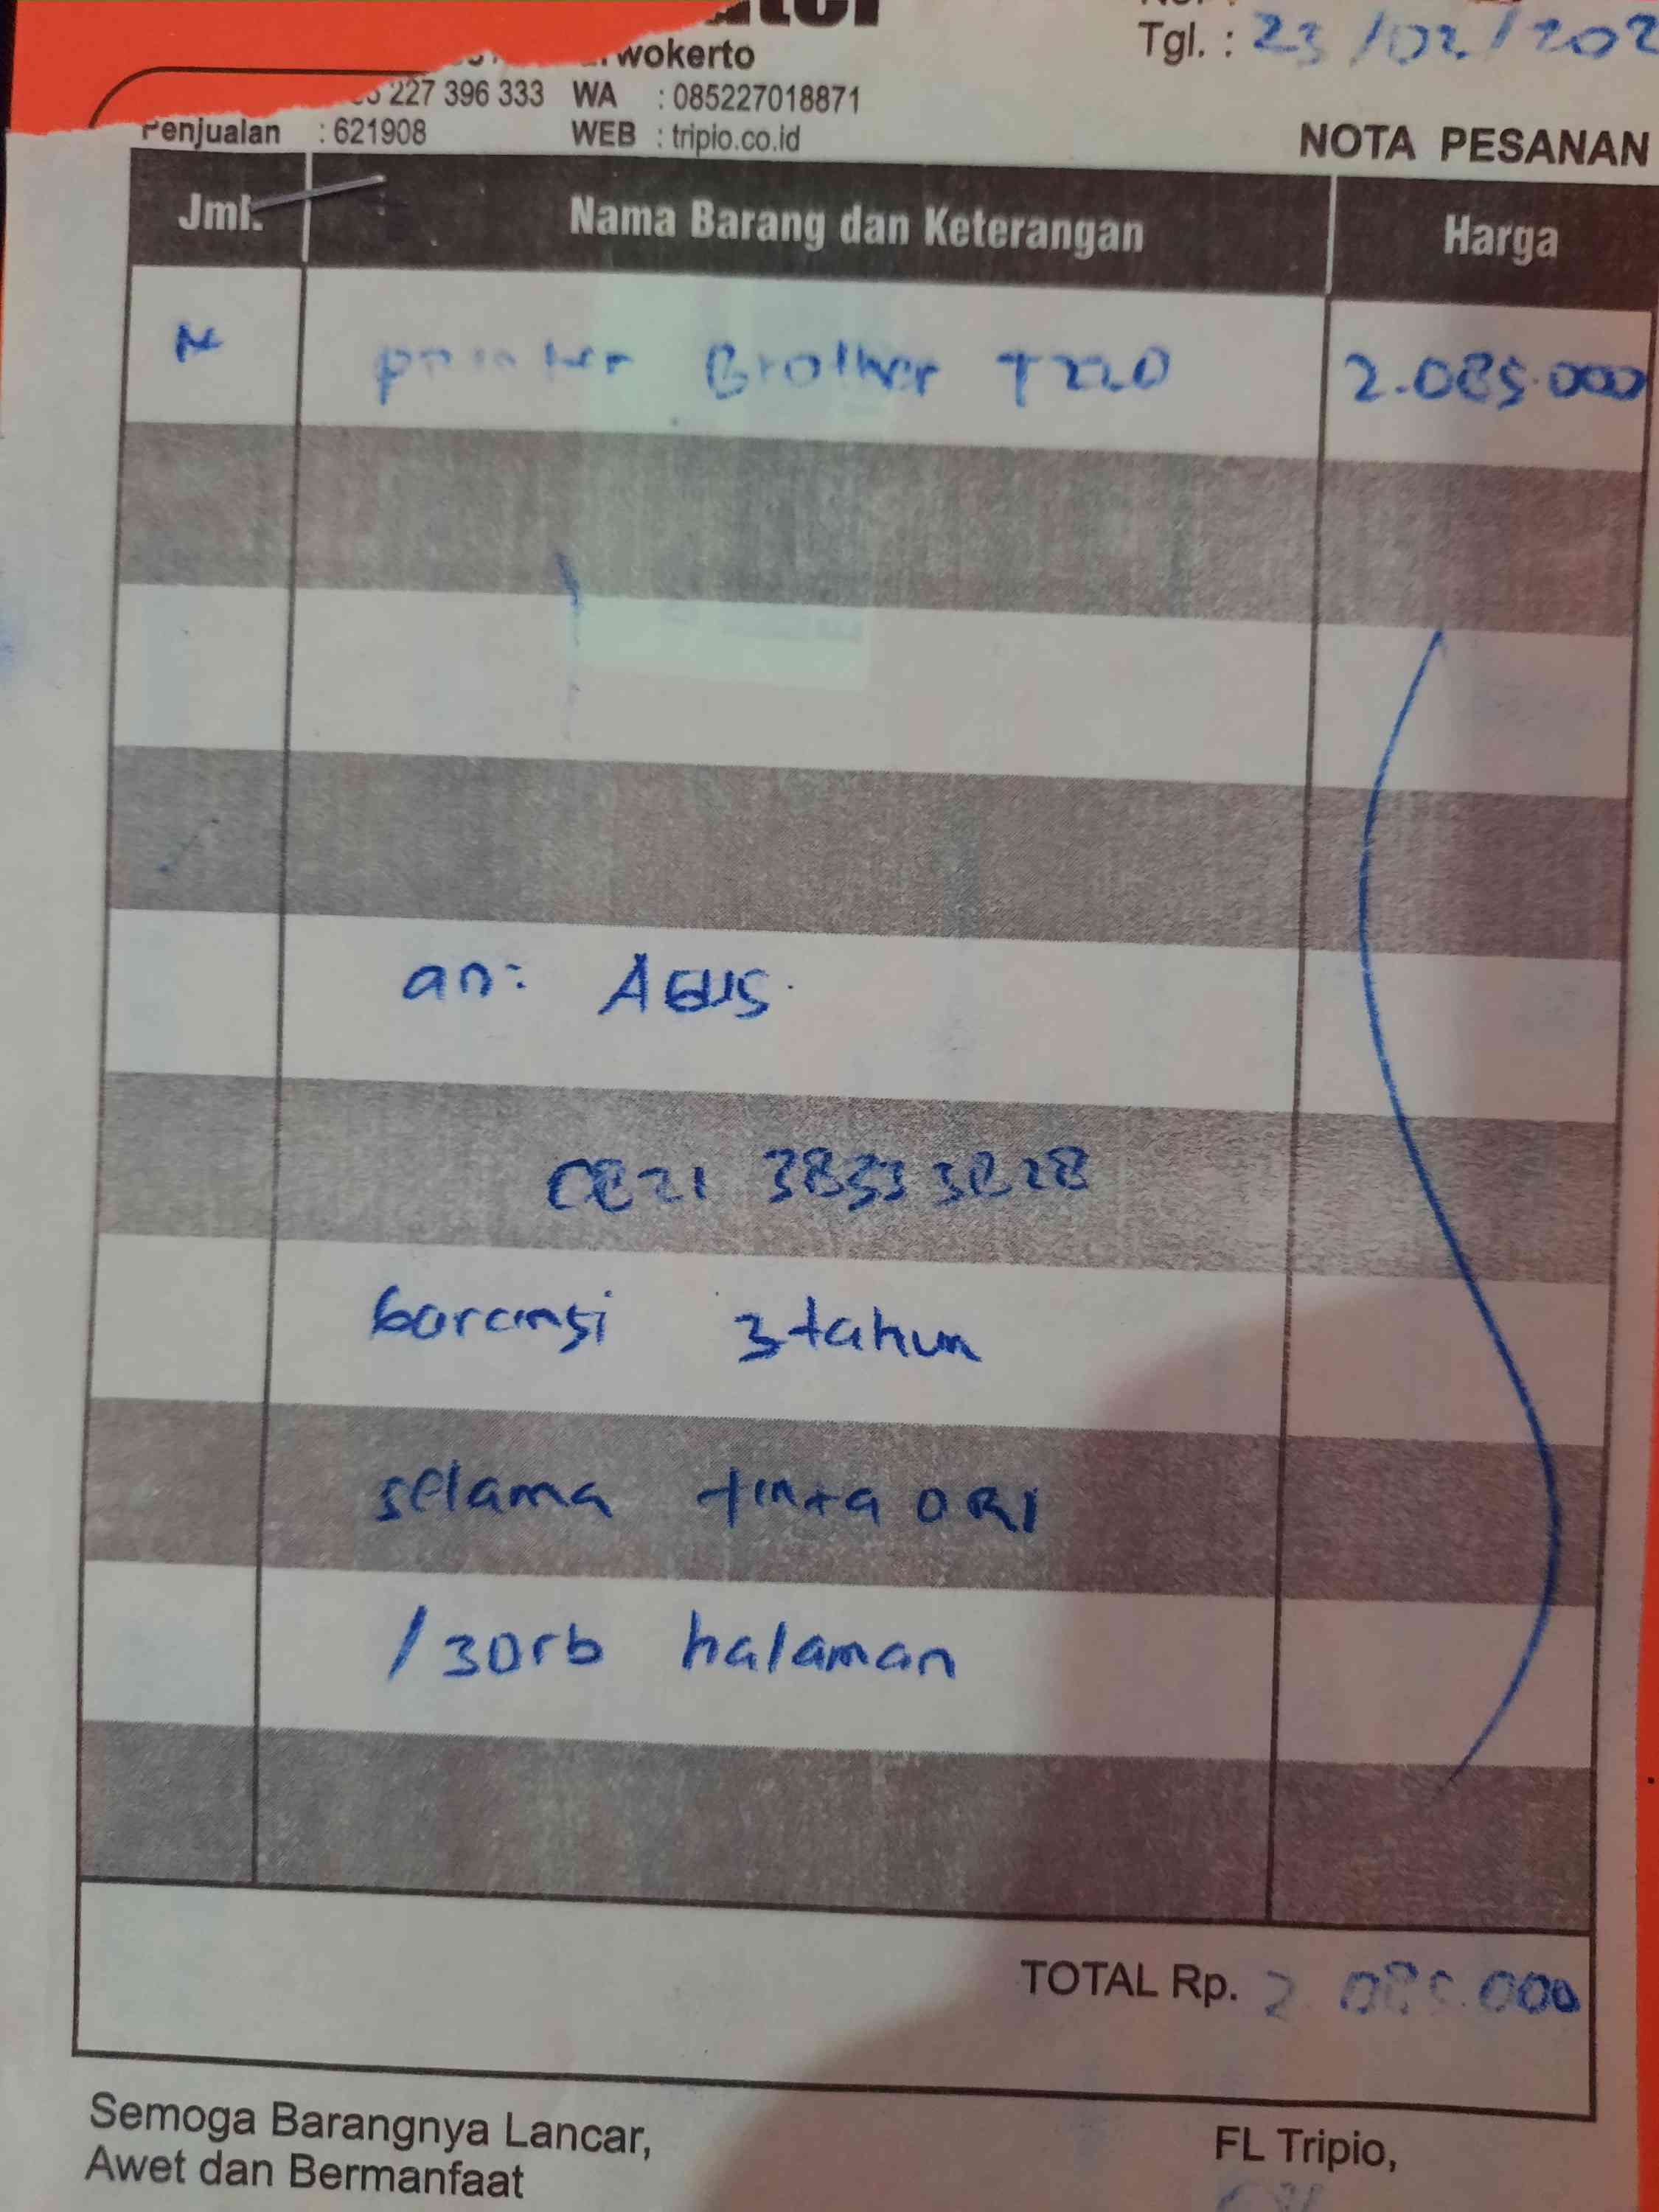 Tgl. : 23/02/202
wokerto
227 396 333 WA : 085227018871
Penjualan : 621908 WEB : tripio.co.id
NOTA PESANAN
Jml. Nama Barang dan Keterangan Harga
printer Brother T220 2.085.000
an: AGUS.
0821 3833 3828
Garansi 3 tahun
selama tinta ORI
/30rb halaman
TOTAL Rp. 2.085.000
Semoga Barangnya Lancar,
Awet dan Bermanfaat
FL Tripio,